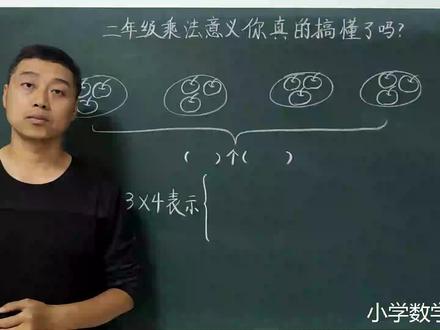 二年级乘法意义你真的搞懂了吗?
( )个( )
3×4表示
小学数学